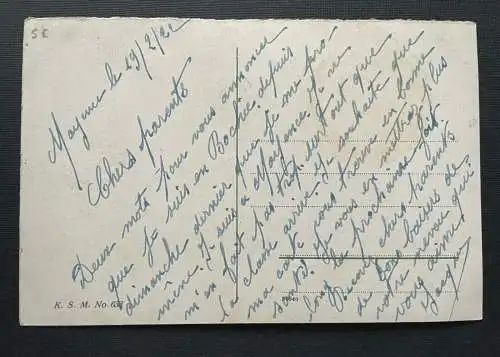 5€
Mayence le 23/2/22
Chers parents
Deux mots pour vous annoncer
que je suis en Bochie depuis
dimanche dernier que je me pro
mène. Je suis à Mayence. Je ne
m'en fait pas trop surtout que
la classe arrive. Je souhaite que
ma carte vous trouve en bonne
santé. Je vous en mettrai plus
long la prochaine fois.
Recevez chers parents
de bons baisers de
votre neveu qui
vous aime.
K. S. M. No 637